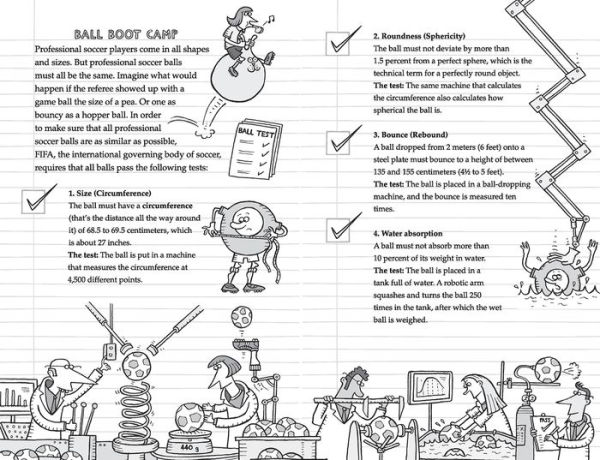 BALL BOOT CAMP
Professional soccer players come in all shapes
and sizes. But professional soccer balls
must all be the same. Imagine what would
happen if the referee showed up with a
game ball the size of a pea. Or one as
bouncy as a hopper ball. In order
to make sure that all professional
soccer balls are as similar as possible,
FIFA, the international governing body of soccer,
requires that all balls pass the following tests:
BALL TEST
1. Size (Circumference)
The ball must have a circumference
(that's the distance all the way around
it) of 68.5 to 69.5 centimeters, which
is about 27 inches.
The test: The ball is put in a machine
that measures the circumference at
4,500 different points.
440 g
2. Roundness (Sphericity)
The ball must not deviate by more than
1.5 percent from a perfect sphere, which is the
technical term for a perfectly round object.
The test: The same machine that calculates
the circumference also calculates how
spherical the ball is.
3. Bounce (Rebound)
A ball dropped from 2 meters (6 feet) onto a
steel plate must bounce to a height of between
135 and 155 centimeters (4½ to 5 feet).
The test: The ball is placed in a ball-dropping
machine, and the bounce is measured ten
times.
4. Water absorption
A ball must not absorb more than
10 percent of its weight in water.
The test: The ball is placed in a
tank full of water. A robotic arm
squashes and turns the ball 250
times in the tank, after which the wet
ball is weighed.